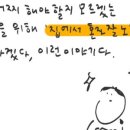 해야 할지 모르겠는
을 위해 '집에서 혼자 잘 노
다, 이런 이야기다.